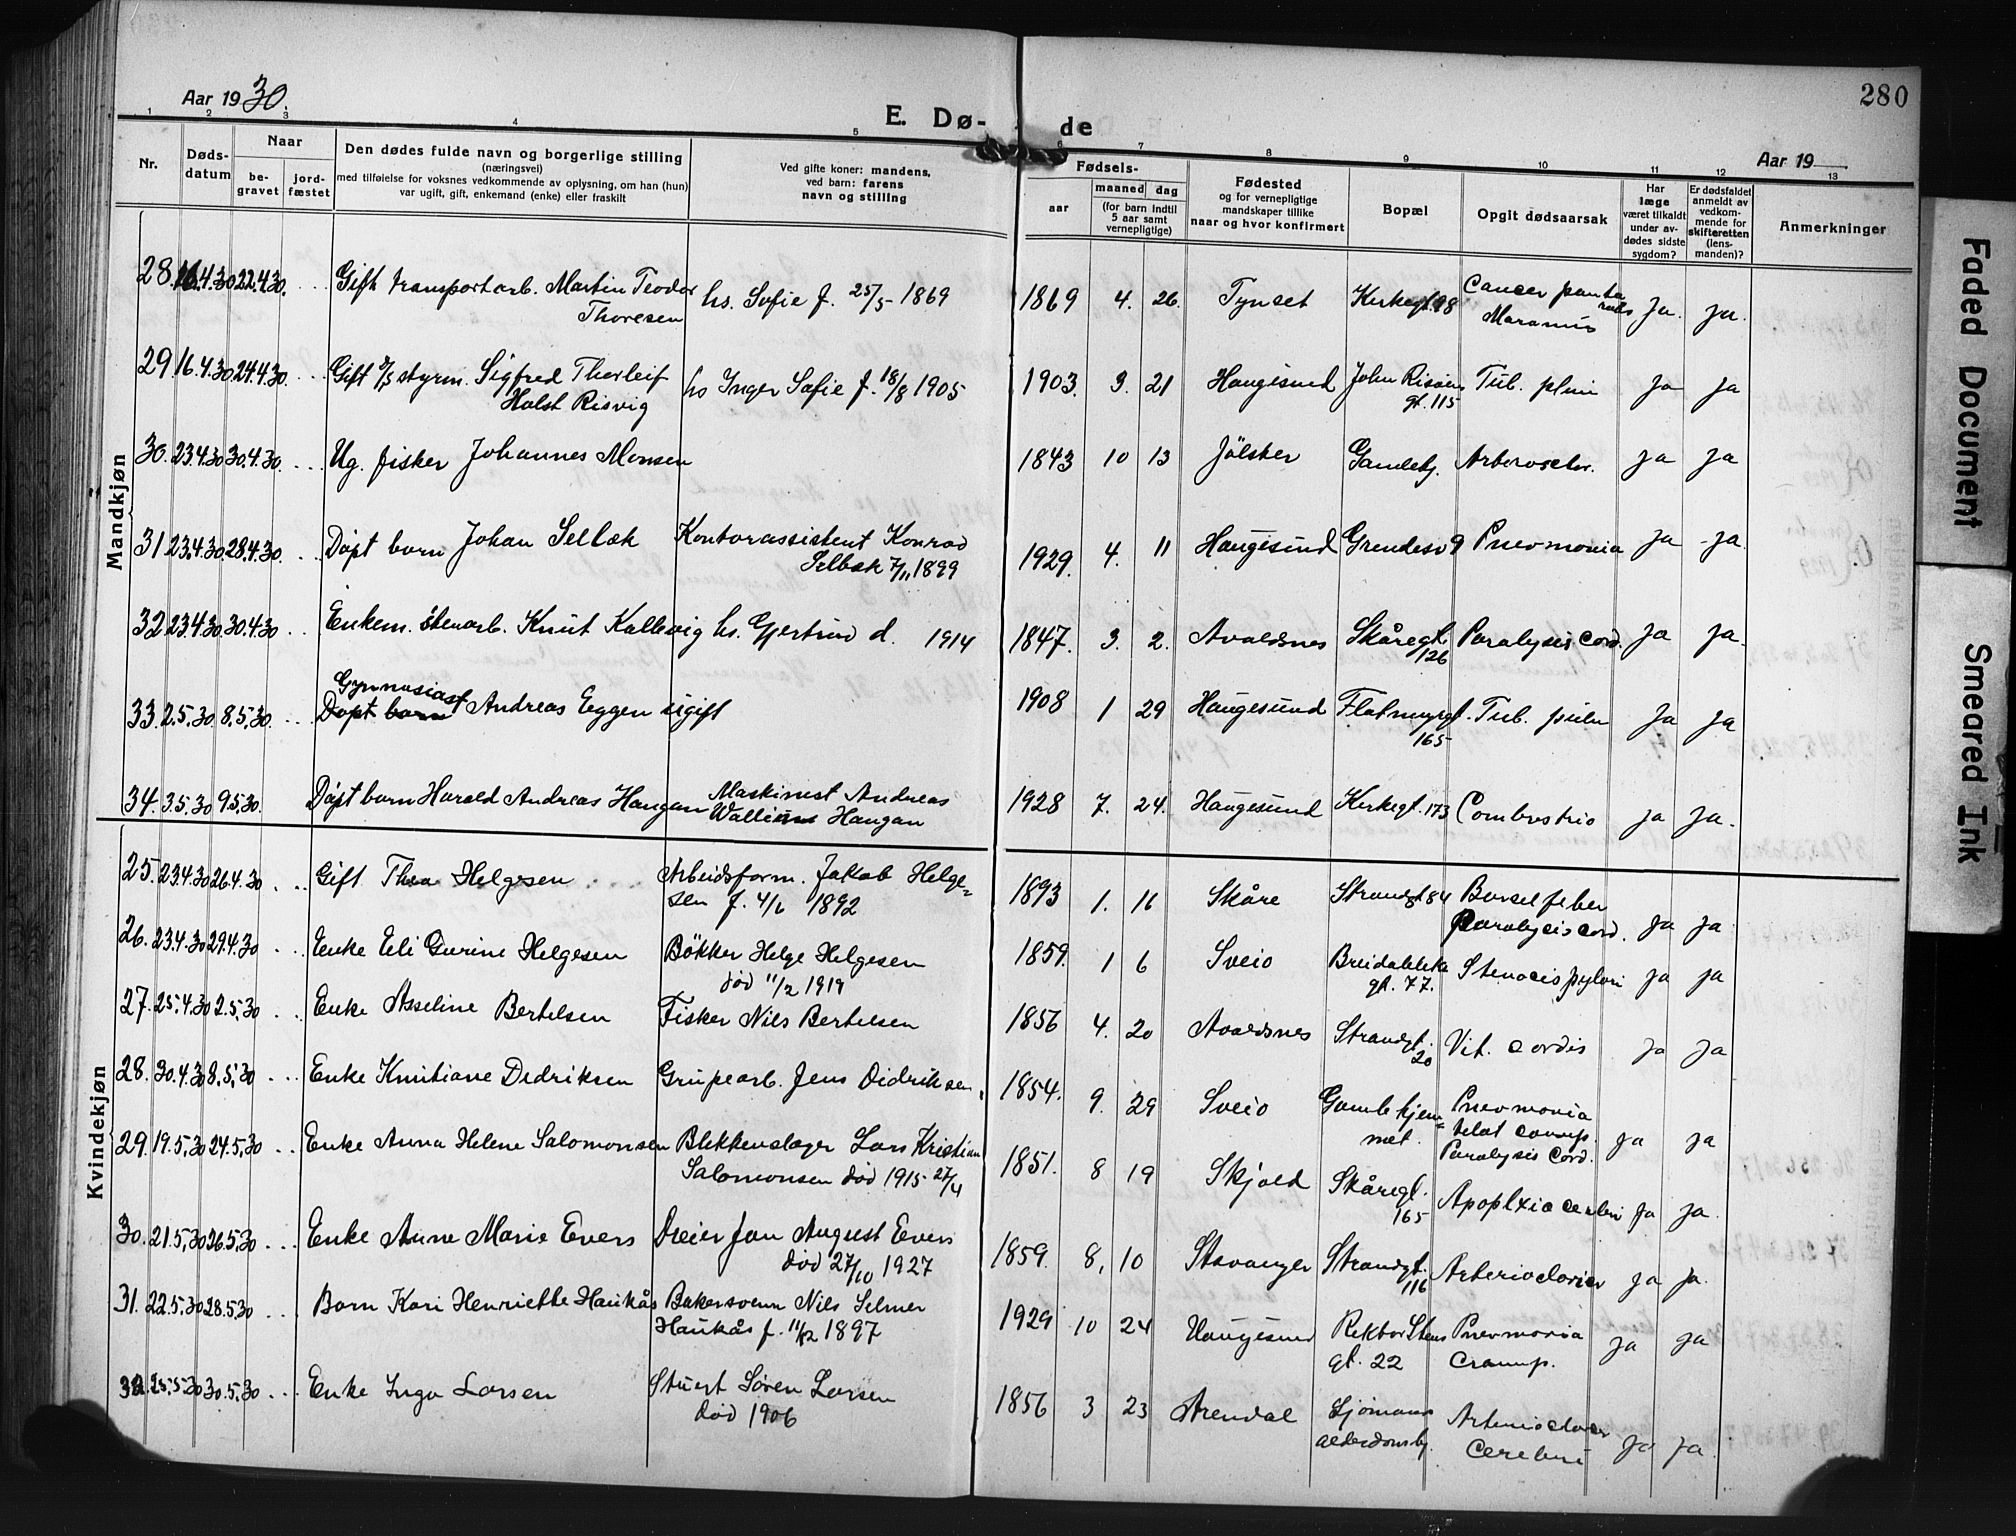 280
Aar 1930.
E. Dø- de
Aar 19
1 2 3 4 5 6 7 8 9 10 11 12 13
Nr.
Døds-
datum
Naar
be-
gravet
jord-
fæstet
Den dødes fulde navn og borgerlige stilling
(næringsvei)
med tilføielse for voksnes vedkommende av oplysning, om han (hun)
var ugift, gift, enkemand (enke) eller fraskilt
Ved gifte koner: mandens,
ved barn: farens
navn og stilling
Fødsels-
aar
maaned dag
(for barn indtil
5 aar samt
vernepligtige)
Fødested
og for vernepligtige
mandskaper tillike
naar og hvor konfirmert
Bopæl
Opgit dødsaarsak
Har
læge
været tilkaldt
under av-
dødes sidste
sygdom?
Er dødsfaldet
anmeldt av
vedkom-
mende for
skifteretten
(lens-
manden)?
Anmerkninger
Mandkjøn
28. 16.4.30 22.4.30. Gift transportarb. Martin Teodor hs. Sofie f. 25/5 1869 1869 4. 26. Tynset Kirkegt. 98 Cancer Ja. ja.
Thoresen
29 16.4.30 24.4.30. Gift styrm. Sigfred Thorleif hs Inger Sofie f. 18/8 1905 1903. 3. 21 Haugesund John Risøens Tub. pulm Ja ja
Holst Risvig gt. 115
30. 23.4.30 30.4.30. Ug. fisker Johannes Monsen 1843 10 13 Jölster Gamlehj. Arterosclr. ja ja
31 23.4.30 28.4.30. Døpt barn Johan Selbæk Kontorassistent Konrad 1929. 4. 11 Haugesund 9 Pnevmonia ja ja
Selbæk 7/11 1899
32 23.4.30. 30.4.30 Enkem. stenarb. Knut Kallevig hs. Gjertrud d. 1914 1847. 3. 2. Avaldsnes Skåregt. Paralysis cord. ja ja.
126
Gymnasiast
33. 2.5.30. 8.5.30. Døpt barn Andreas Eggen ugift 1908 1 29 Haugesund Flotmyrgt. Tub. pulm Ja ja
165
34. 3.5.30 9.5.30. Døpt barn Harald Andreas Haugan Maskinist Andreas 1928 7. 24. Haugesund Kirkegt. 173 Combustio ja ja.
Haugan
Kvindekjøn
25. 23.4.30 26.4.30 Gift Thea Helgesen Arbeidsform. Jakob Helge= 1893 1. 16 Skåre Strandgt 84 Barselfeber
sen f. 4/6 1892 Paralysis cord. ja ja
26. 23.4.30 29.4.30 Enke Eli Gurine Helgesen Bökker Helge Helgesen 1859. 1 6 Sveio Breidablikk Stenocis pylori ja ja
død 11/2 1919 gt. 77.
27. 25.4.30 2.5.30 Enke Asseline Bertelsen Fisker Nils Bertelsen 1856 4. 20 Avaldsnes Strandgt. Vit. cordis ja ja
20
28. 30.4.30 8.5.30 Enke Kristiane Didriksen Grupearb. Jens Didriksen. 1854. 9. 29 Sveio Gamlehjem= Pnevmonia
met.
Paralysis Cord. ja ja
29. 19.5.30 24.5.30 Enke Anna Helene Salomonsen Blikkenslager Lars Kristian 1851. 8 19 Skjold Skåregt. Apoplxia cerebri ja ja.
Salomonsen død 1915 27/4 165
30. 21.5.30 26.5.30 Enke Anne Marie Evers Dreier Jan August Evers 1859. 8, 10 Stavanger Strandgt. ja ja.
død 27/10 1927 116
31. 22.5.30 28.5.30 Barn Kari Henriette Haukås Bakersvenn Nils Selmer 1929 10 24 Haugesund Rektor Stens Pnevmonia
Haukås f. 11/12 1897 gt. 22 Croup. ja ja
32. 25.5.30 30.5.30 Enke Inga Larsen Stuert Sören Larsen 1856 3 23 Arendal Sjömans
død 1906 Cerebri ja ja.
Faded Document
Smeared Ink